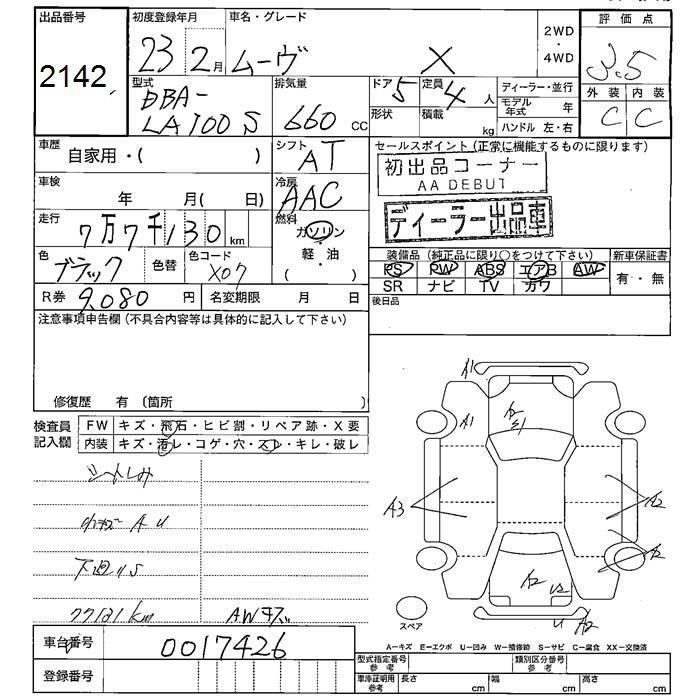 出品番号
2142
初度登録年月
23 2月
車名・グレード
ムーヴ X
2WD
・
4WD
評価点
3.5
型式
DBA-
LA100S
排気量
660 CC
ドア 5
定員 4 人
形状
積載 kg
ディーラー・並行
モデル年式 年
ハンドル 左・右
外装 内装
C C
車歴
自家用・( )
シフト
AT
セールスポイント(正常に機能するものに限ります)
初出品コーナー
AA DEBUT
ディーラー出品車
車検
年 月( 日)
冷房
AAC
走行
7万7千130 km
燃料
ガソリン
・
軽・油
( )
色
ブラック
色替
色コード
X07
装備品(純正品に限り○をつけて下さい)
新車保証書
PS PW ABS エアB AW
有・無
SR ナビ TV カワ
R券 9,080 円
名変期限 月 日
後日品
注意事項申告欄(不具合内容等は具体的に記入して下さい)
修復歴 有(箇所
検査員
記入欄
FW キズ・飛石・ヒビ割・リペア跡・X要
内装 キズ・汚レ・コゲ・穴・スレ・キレ・破レ
シートしみ
小キズ A U
下廻りS
77131 km
AWキズ
A1
A1
A3
A2
A2
A2
U2
A2
スペア
A=キズ E=エクボ U=凹み W=補修跡 S=サビ C=腐食 XX=交換済
車台番号
0017426
登録番号
型式指定番号
参考
類別区分番号
参考
車庫証明用
参考
長さ cm
幅 cm
高さ cm